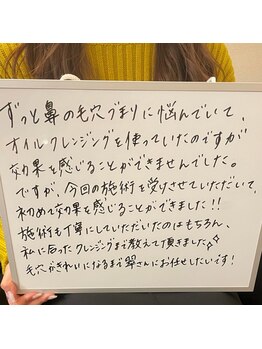 ずっと鼻の毛穴づまりに悩んでいて、
オイルクレンジングを使っていたのですが
効果を感じることができませんでした。
ですが、今回の施術を受けさせていただいて、
初めて効果を感じることができました!!
施術も丁寧にしていただいたのはもちろん、
私に合ったクレンジングまで教えて頂きました✧
毛穴がきれいになるまで翠さんにお任せしたいです!